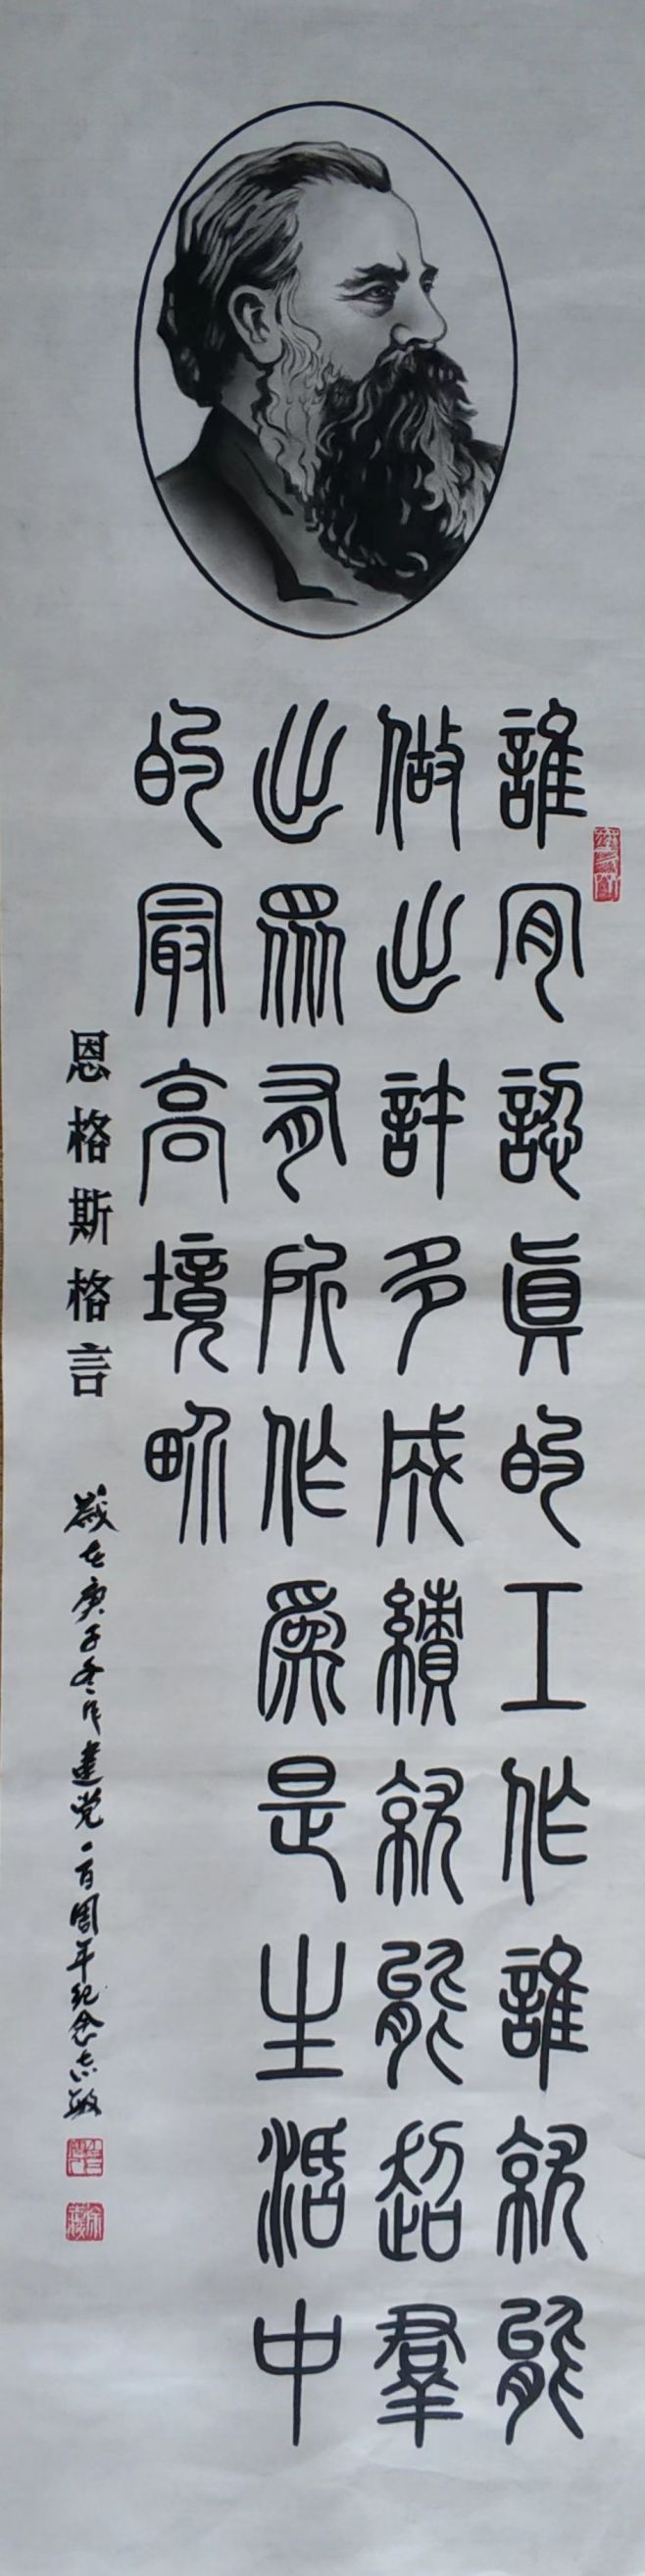 誰肎認眞的工作誰就能
做出許多成績就能超羣
出眾有所作爲是生活中
的最高境畍
恩格斯格言
歲在庚子冬作建党一百周年纪念志敏